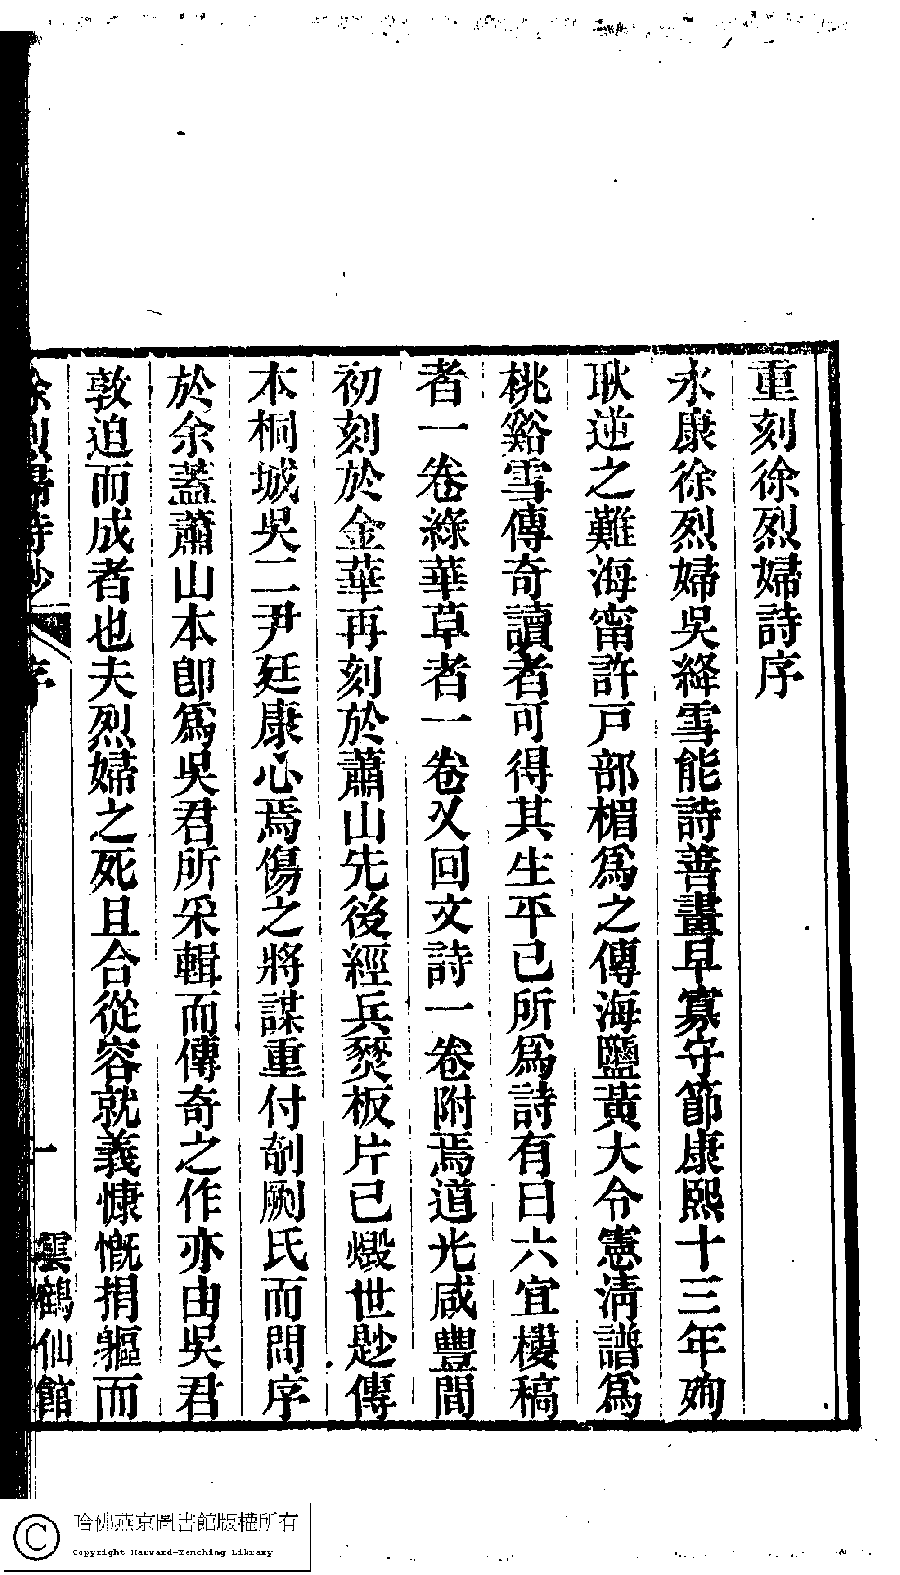 重刻徐烈婦詩序
永康徐烈婦吳絳雪能詩善畫早寡守節康熙十三年殉
耿逆之難海甯許戸部楣爲之傳海鹽黃大令憲淸譜爲
桃谿雪傳奇讀者可得其生平已所爲詩有曰六宜樓稿
者一卷綠華草者一卷又回文詩一卷附焉道光咸豐間
初刻於金華再刻於蕭山先後經兵燹板片已燬世尟傳
本桐城吳二尹廷康心焉傷之將謀重付剞劂氏而問序
於余蓋蕭山本卽爲吳君所采輯而傳奇之作亦由吳君
敦迫而成者也夫烈婦之死且合從容就義慷慨捐軀而
徐烈婦詩鈔
序
一
雲鶴仙館
哈佛燕京圖書館版權所有
Copyright Harvard-Yenching Library